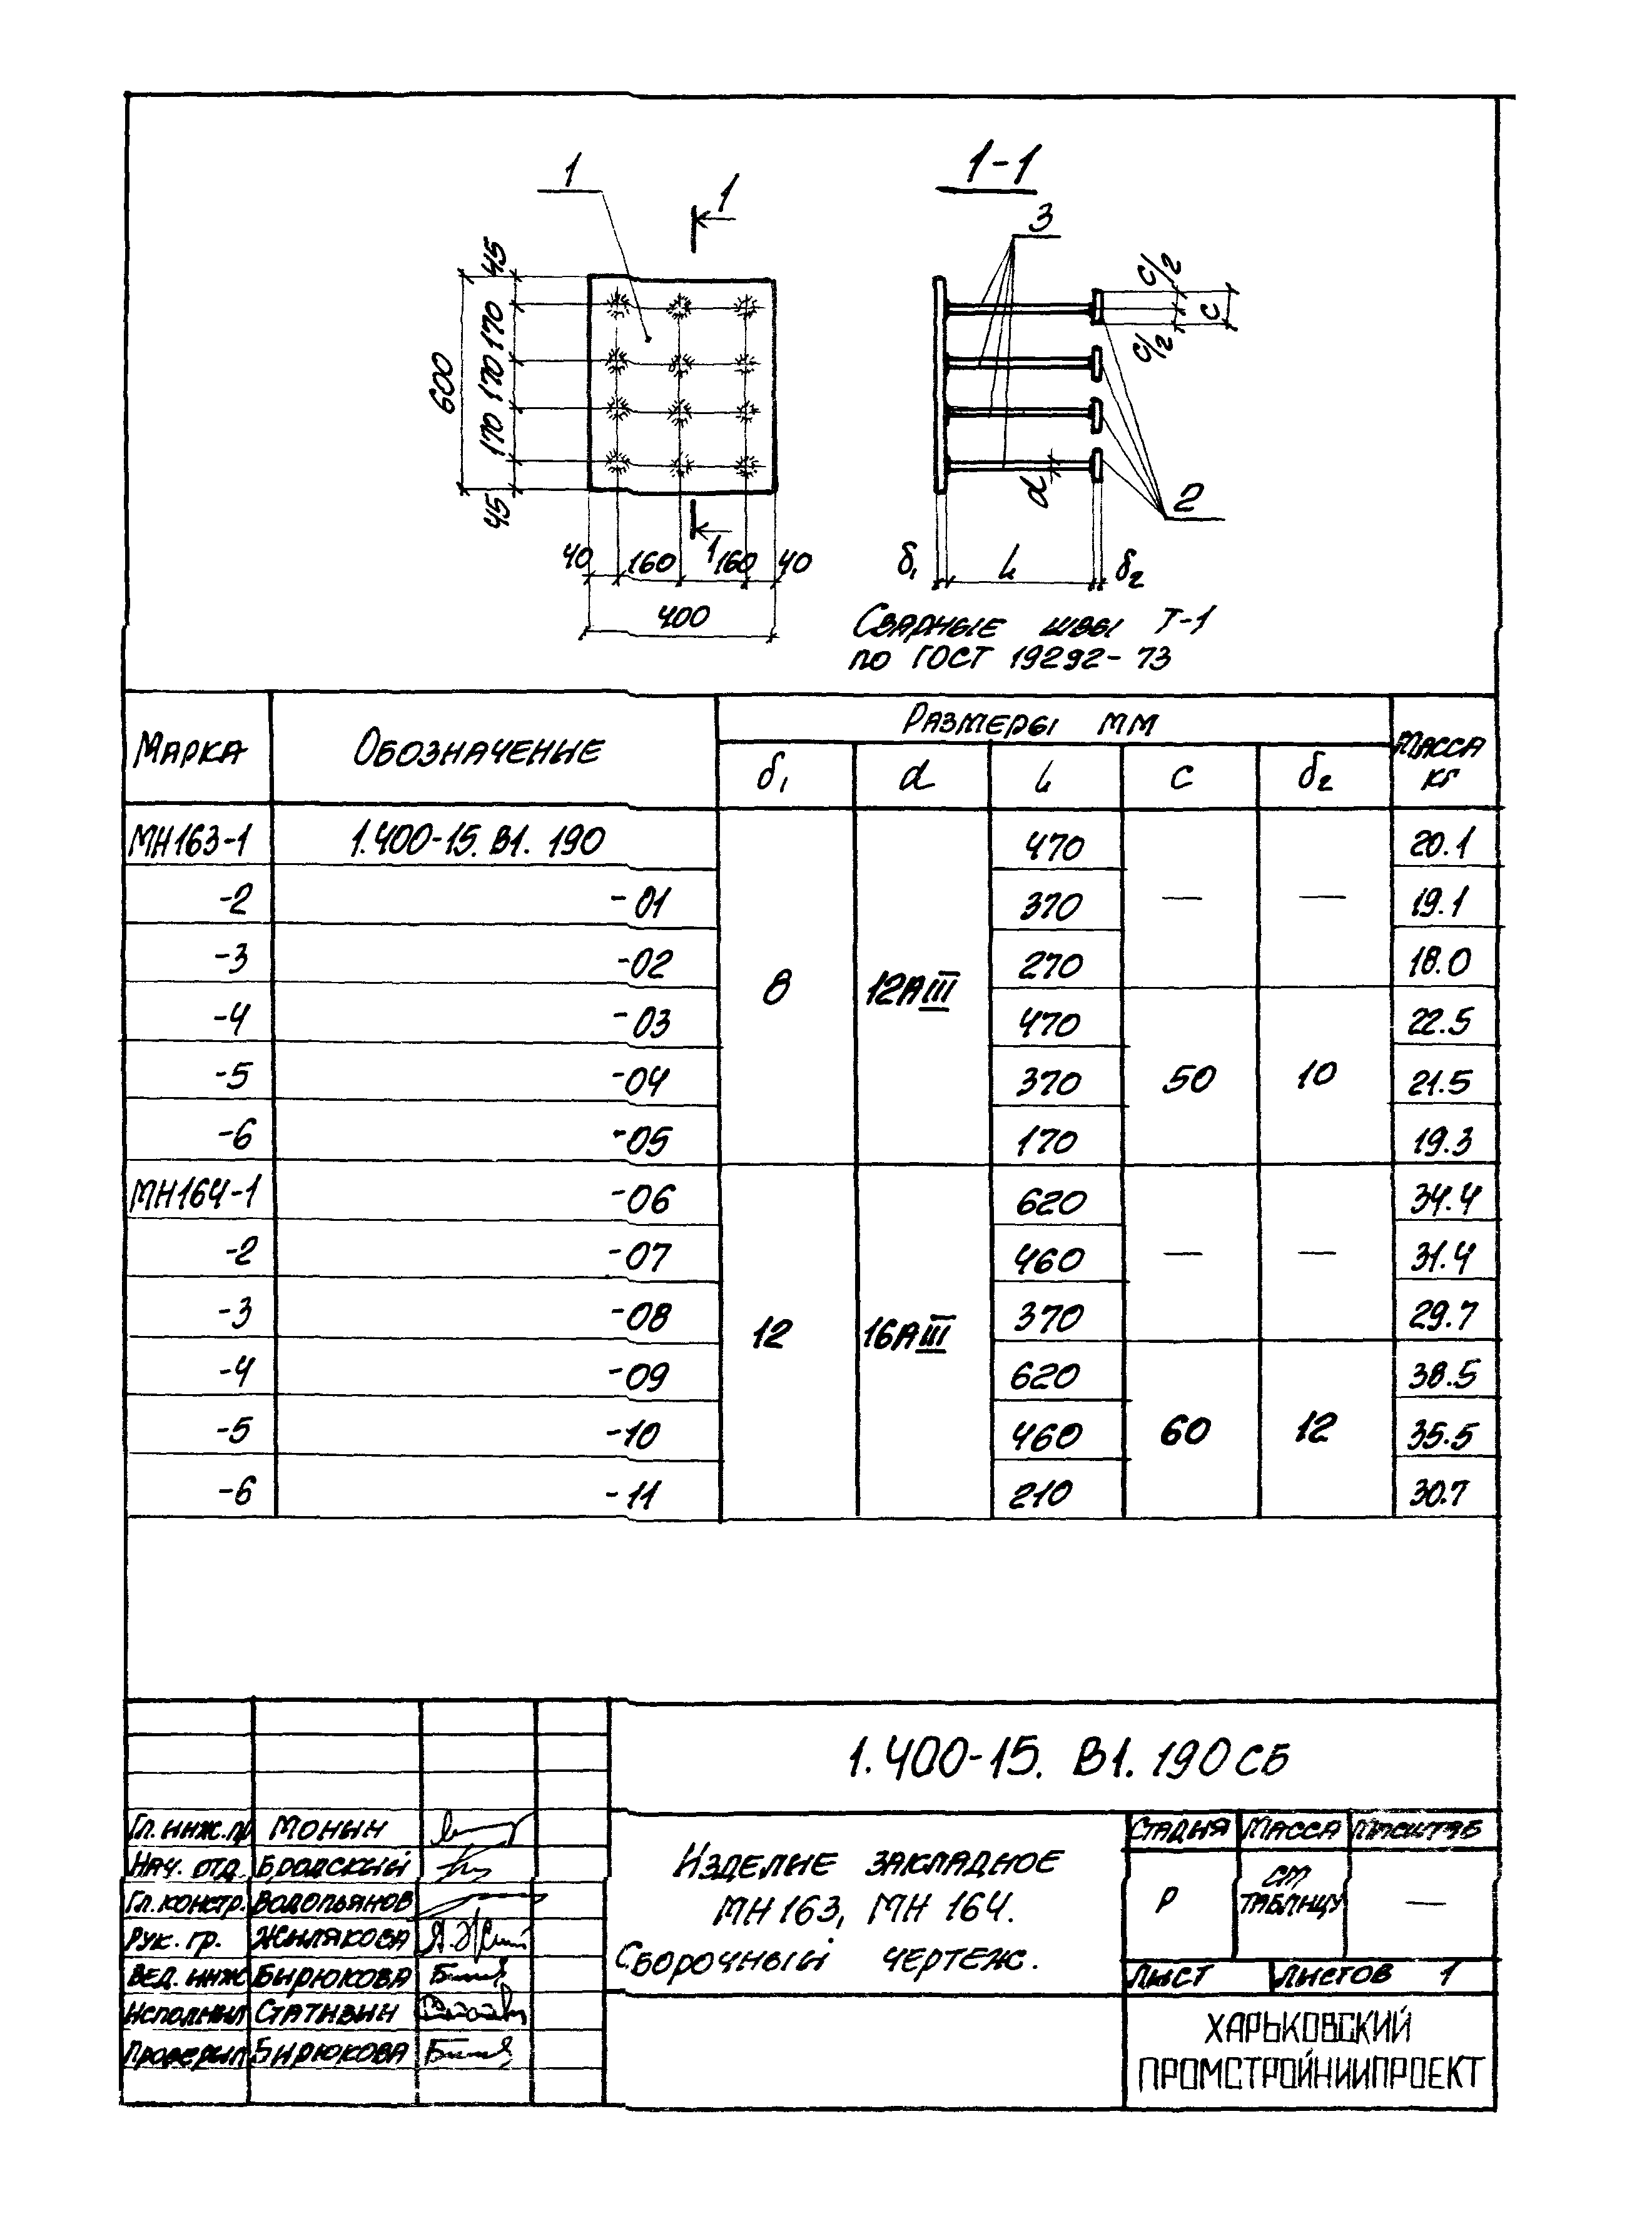 1
1
1-1
3
45
170
170
170
45
600
40
160
1
160
40
400
c/2
c
c/2
d
2
δ1
L
δ2
Сварные швы Т-1
по ГОСТ 19292-73
Марка Обозначение Размеры мм Масса кг
δ1 d L c δ2
МН163-1 1.400-15.В1.190 470 20.1
-2 -01 370 — — 19.1
-3 -02 270 18.0
8 12АIII
-4 -03 470 22.5
-5 -04 370 50 10 21.5
-6 -05 170 19.3
МН164-1 -06 620 34.4
-2 -07 460 — — 31.4
-3 -08 370 29.7
12 16АIII
-4 -09 620 38.5
-5 -10 460 60 12 35.5
-6 -11 210 30.7
1.400-15. В1.190СБ
Гл. инж. пр Монин
Нач. отд. Бродский
Гл. констр. Водопьянов
Рук. гр. Жилякова
Вед. инж Бирюкова
Исполнил Стативин
Проверил Бирюкова
Изделие закладное
МН 163, МН 164.
Сборочный чертеж.
Стадия Масса Масштаб
Р см таблицу —
Лист Листов 1
ХАРЬКОВСКИЙ
ПРОМСТРОЙНИИПРОЕКТ